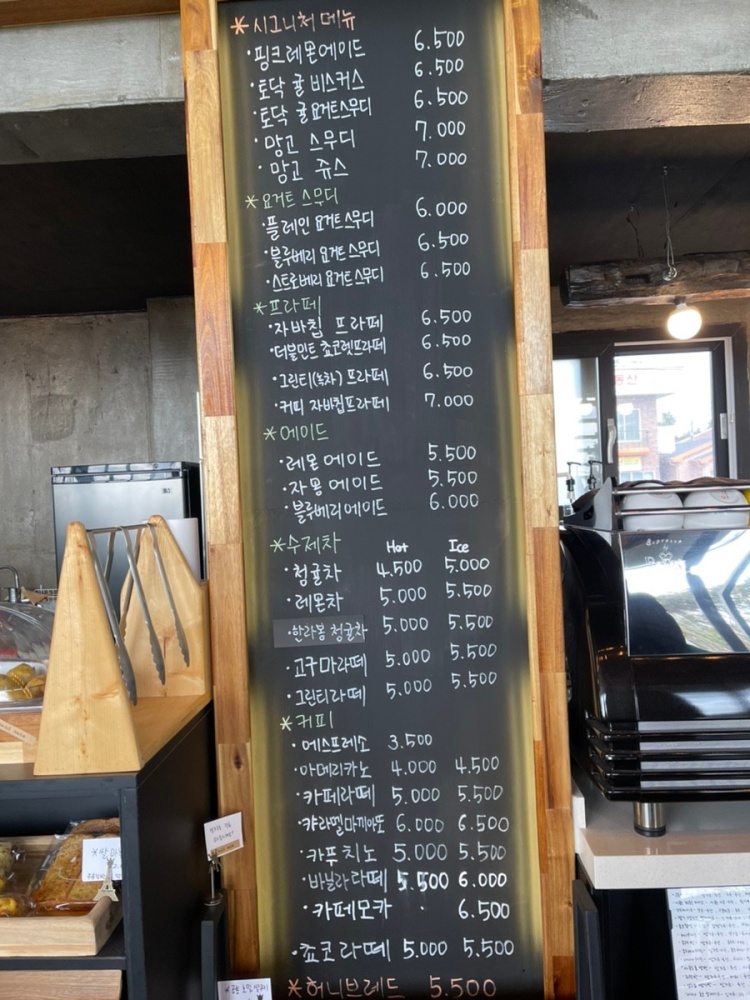 *시그니처 메뉴
·핑크레몬에이드 6.500
·토닥 귤 비스커스 6.500
·토닥 귤요거트스무디 6.500
·망고 스무디 7.000
·망고 쥬스 7.000
*요거트 스무디
·플레인 요거트스무디 6.000
·블루베리 요거트스무디 6.500
·스트로베리 요거트스무디 6.500
*프라페
·자바칩 프라페 6.500
·더블민트 쵸코렛프라페 6.500
·그린티(녹차) 프라페 6.500
·커피 자바칩프라페 7.000
*에이드
·레몬에이드 5.500
·자몽에이드 5.500
·블루베리에이드 6.000
*수제차 Hot Ice
·청귤차 4.500 5.000
·레몬차 5.000 5.500
·한라봉 청귤차 5.000 5.500
·고구마라떼 5.000 5.500
·그린티라떼 5.000 5.500
*커피
·에스프레소 3.500
·아메리카노 4.000 4.500
·카페라떼 5.000 5.500
·캬라멜마끼아또 6.000 6.500
·카푸치노 5.000 5.500
·바닐라라떼 5.500 6.000
·카페모카 6.500
·쵸코라떼 5.000 5.500
*허니브레드 5.500